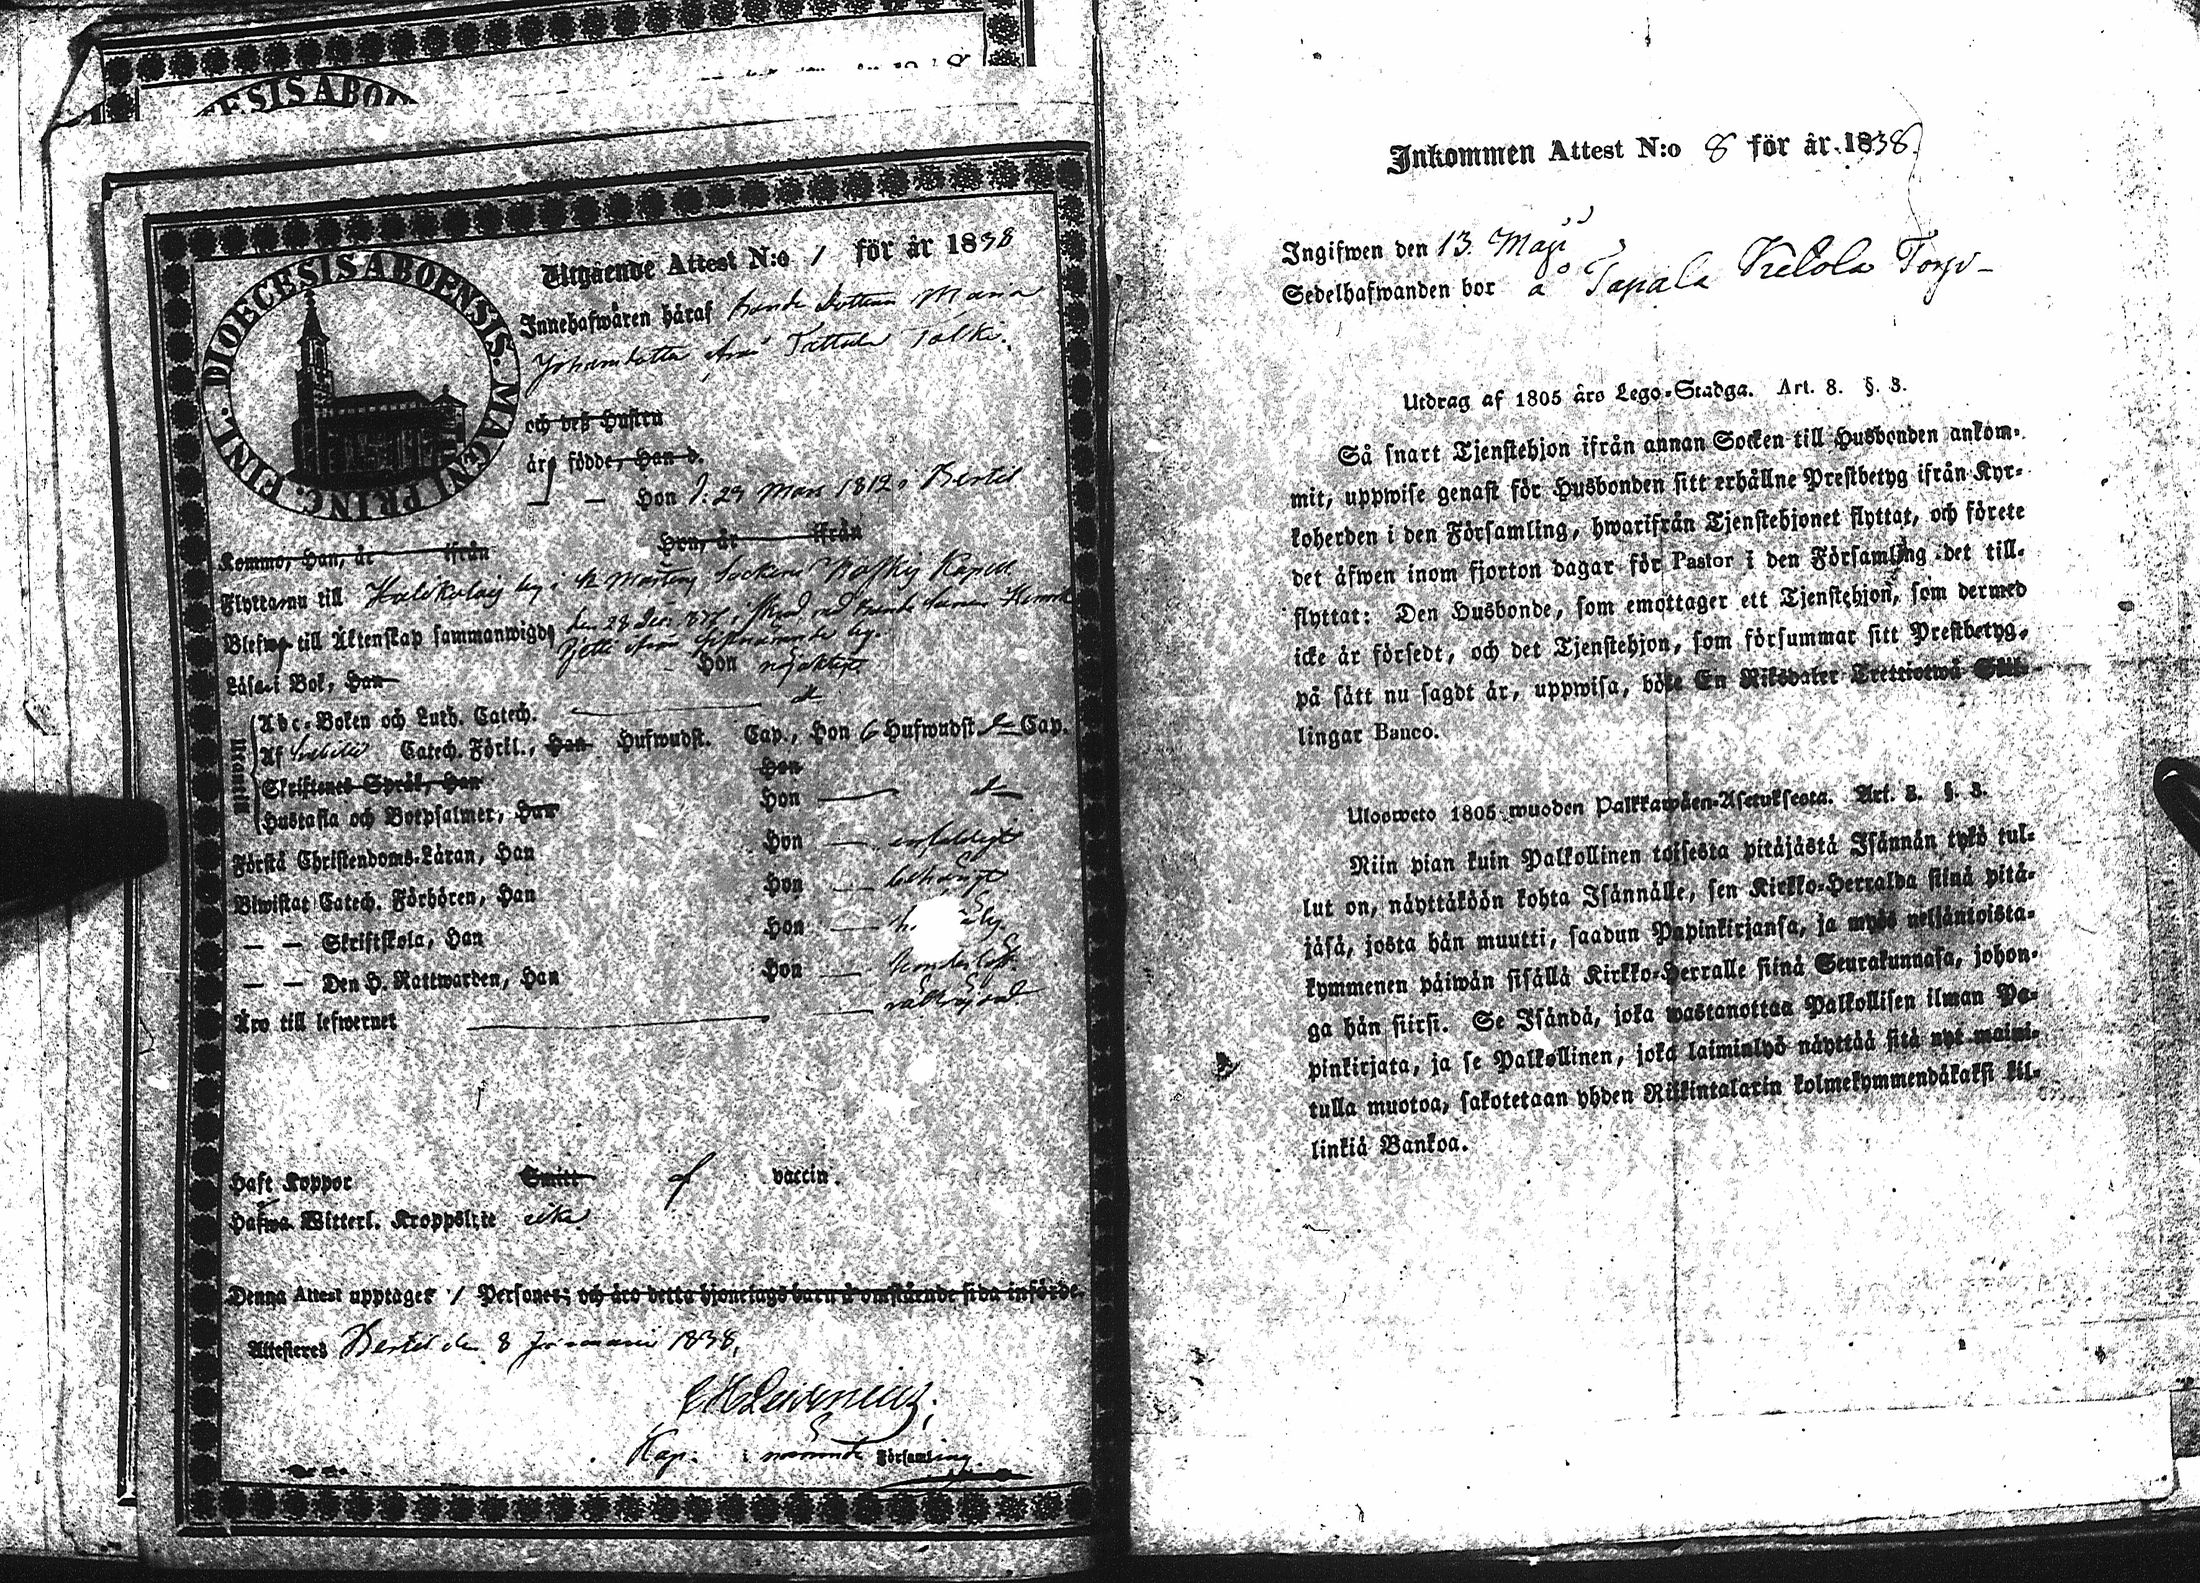 DIOECESIS ABOENSIS. MAGNI PRINC. FINL.
Utgående Attest N:o 1 för år 1838
Innehafwaren häraf bonde Dottren Maria
Johansdotter ifrån Tattula Talki.
och deß Hustru
äro födde, Han d.
— Hon d: 29 Mars 1812 i Bertel
Komme, Han, år ifrån Hon, år ifrån
Flytta nu till by i St Mårtens Sockens Koskis Kapell
Blefwo till Äktenskap sammanwigde den 28 Dec: 1837 i med bonde Sonen Henrik
ifrån sistnämnde by.
Läsa i Bok, Han — Hon nöjaktigt
Utantill
Abc-Boken och Luth. Catech. — d:o
Af Catech. Förkl., Han Hufwudst. Cap., Hon 6 Hufwudst. Cap.
Skriftenes Språk, Han Hon
Hustafla och Botpsalmer, Han Hon — d:o
Första Christendoms-Läran, Han Hon — enfaldigt
Biwistat Catech. Förhören, Han Hon — behörigt
— — Skriftskola, Han Hon —
— — Den H. Nattwarden, Han Hon —
Äro till lefwernet —
Haft Koppor Smitt af vaccin.
Hafwa Witterl. Kroppslyte icke
Denna Attest upptager 1 Personer; och äro detta hjonelags barn å omstående sida införde.
Attesteras Bertel den 8 Januarii 1838.
Kap. i nämnde Församling.
Inkommen Attest N:o 8 för år 1838.
Ingifwen den 13. Maji
Sedelhafwanden bor å Tapala Kelola Torp
Utdrag af 1805 års Lego-Stadga. Art. 8. §. 3.
Så snart Tjenstehjon ifrån annan Socken till Husbonden ankom-
mit, uppwise genast för Husbonden sitt erhållne Prestbetyg ifrån Kyr-
koherden i den Församling, hwarifrån Tjenstehjonet flyttat, och förete
det äfwen inom fjorton dagar för Pastor i den Församling det till-
flyttat: Den Husbonde, som emottager ett Tjenstehjon, som dermed
icke är försedt, och det Tjenstehjon, som försummar sitt Prestbetyg,
på sätt nu sagdt är, uppwisa, böte En Riksdaler Trettiotwå Skil-
lingar Banco.
Ulosweto 1805 wuoden Palkkawäen-Asetuksesta. Art. 8. §. 3.
Niin pian kuin Palkollinen toisesta pitäjästä Isännän tykö tul-
lut on, näyttäköön kohta Isännälle, sen Kirkko-Herralda siinä pitä-
jäsä, josta hän muutti, saadun Papinkirjansa, ja myös neljäntoista-
kymmenen päiwän sisällä Kirkko-Herralle siinä Seurakunnasa, johon-
ga hän siirsi. Se Isändä, joka wastanottaa Palkollisen ilman Pa-
pinkirjata, ja se Palkollinen, joka laiminlyö näyttää sitä nyt maini-
tulla muotoa, sakotetaan yhden Riikintalarin kolmekymmendäkaksi kil-
linkiä Bankoa.